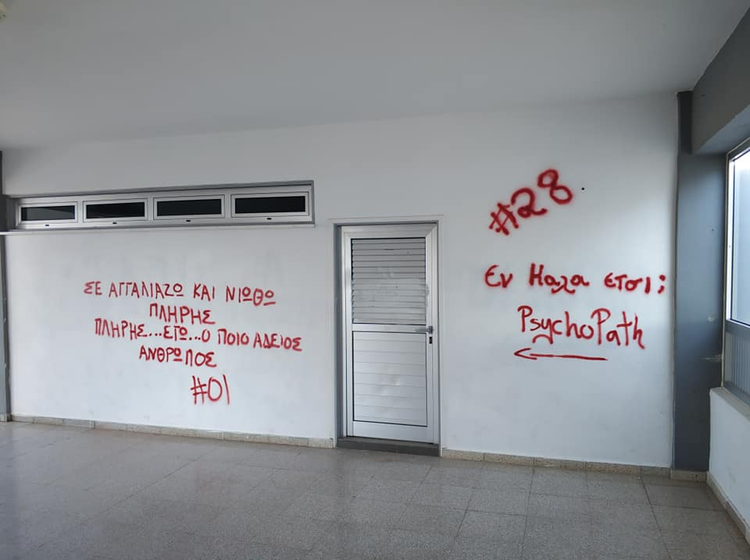 ΣΕ ΑΓΓΑΛΙΑΖΩ ΚΑΙ ΝΙΩΘΩ
ΠΛΗΡΗΣ
ΠΛΗΡΗΣ...ΕΓΩ...Ο ΠΟΙΟ ΑΔΕΙΟΣ
ΑΝΘΡΩΠΟΣ
#01
#28
Εν Μαλα ετσι;
PsychoPath